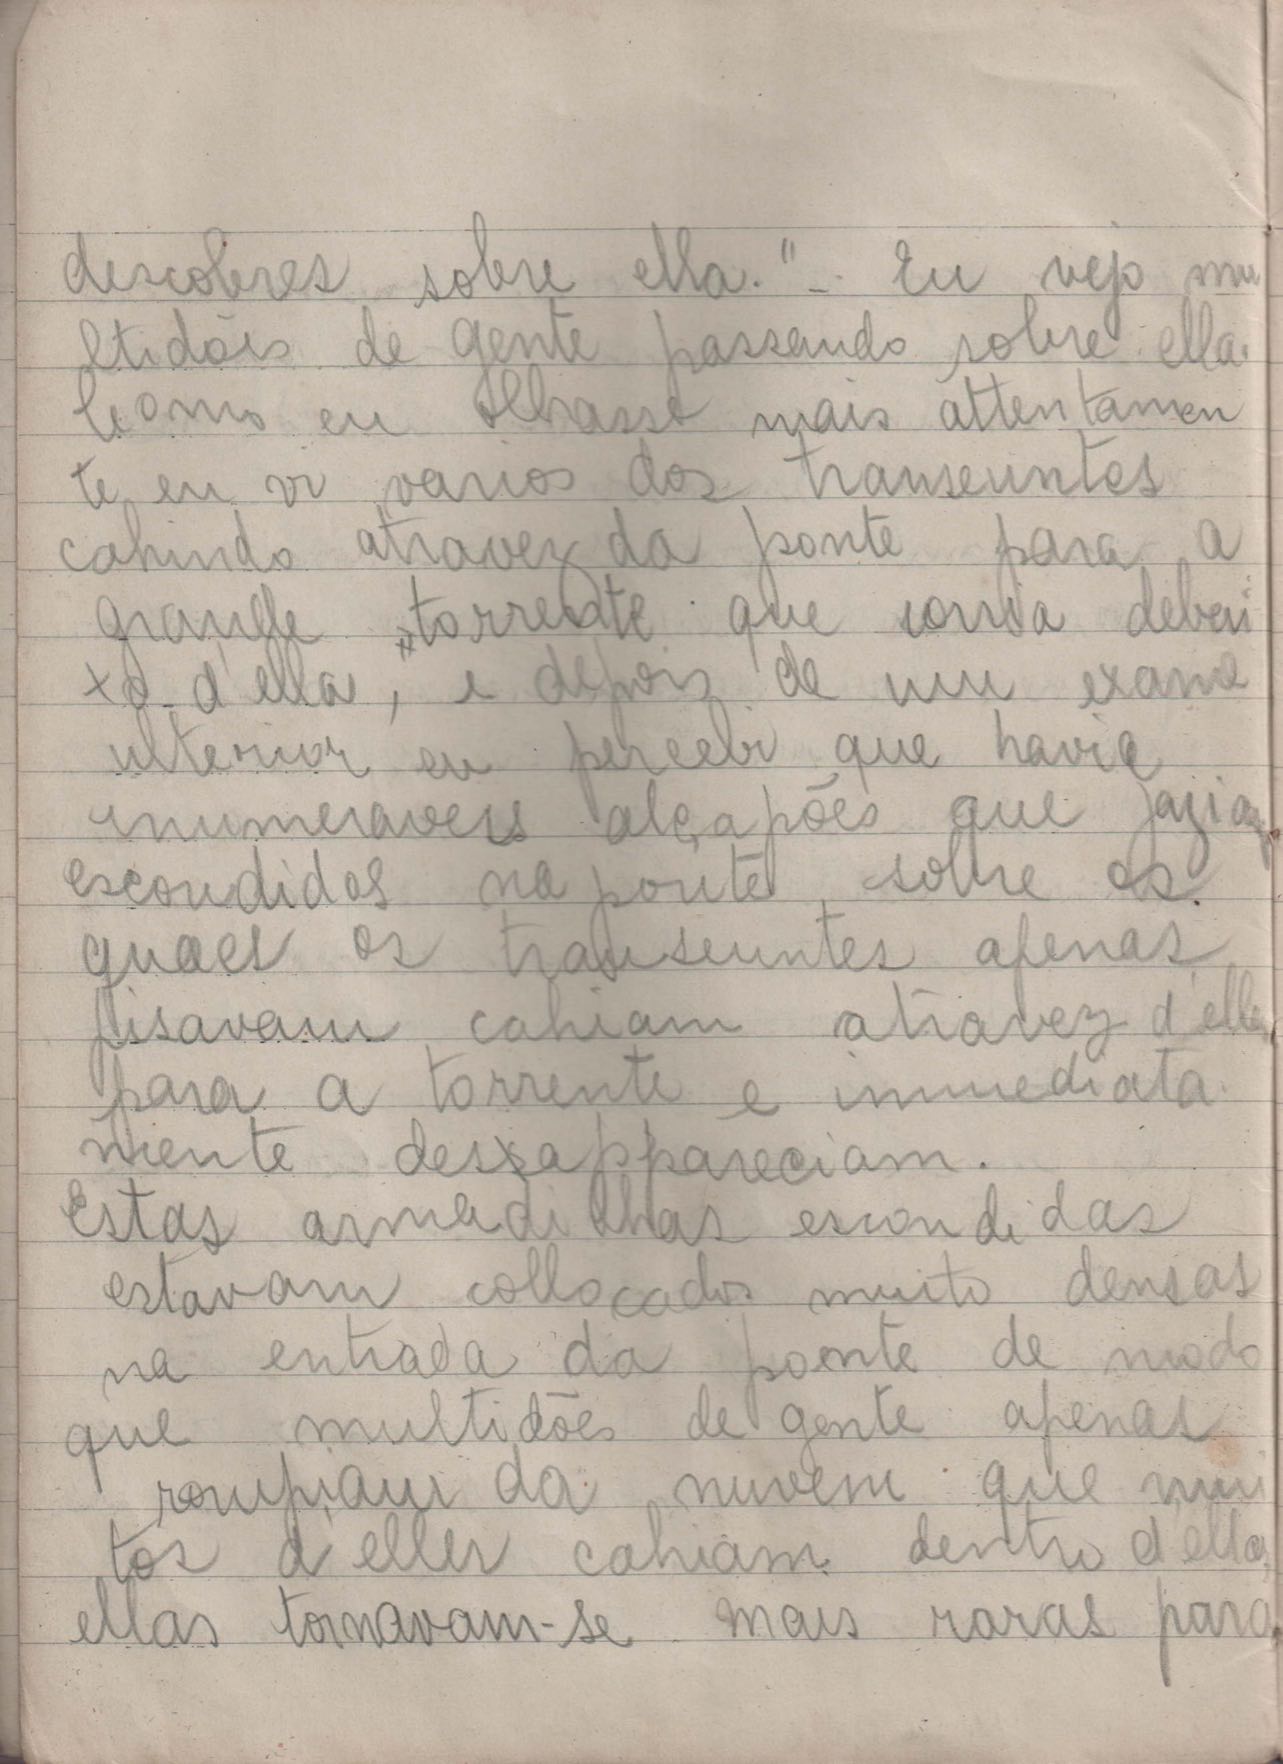 descobres sobre ella." - Eu vejo mu
ltidões de gente passando sobre ella.
Como eu olhasse mais attentamen
te eu vi varios dos transeuntes
cahindo atravez da ponte para a
grande torrente que corria debai
xo d'ella, e depois de um exame
ulterior eu percebi que havia
inumeraveis alçapões que jaziam
escondidos na ponte, sobre os
quaes os transeuntes apenas
pisavam cahiam atravez d'elles
para a torrente e immediata
mente desappareciam.
Estas armadilhas escondidas
estavam collocados muito densas
na entrada da ponte de modo
que multidões de gente apenas
rompiam da nuvem que mui
tos d'elles cahiam dentro d'ellas
ellas tornavam-se mais raras para